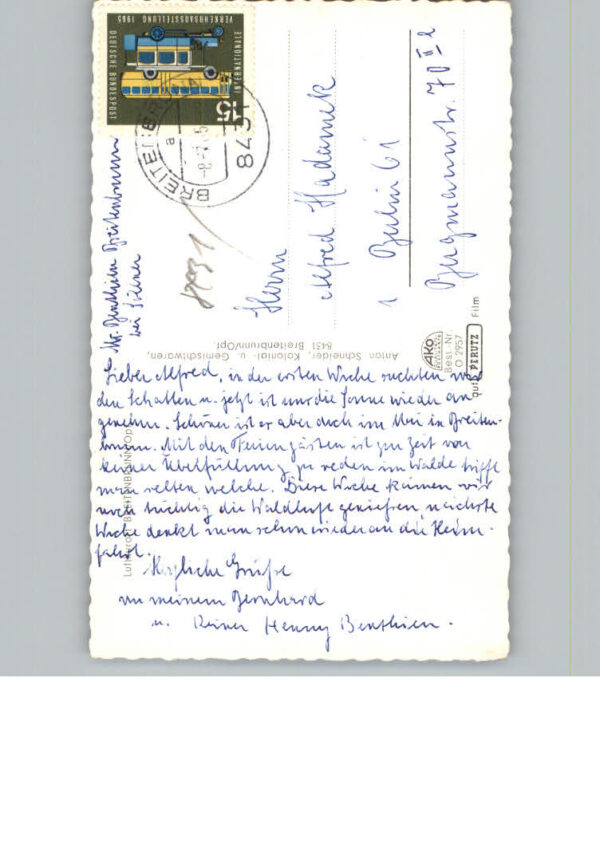 INTERNATIONALE
VERKEHRSAUSSTELLUNG 1965
DEUTSCHE BUNDESPOST
15
8431
BREITENBRUNN
a
8431
Benthien Breitenbrunn
bei
Herrn
Alfred Hadamek
1 Berlin 61
Bergmannstr. 70 III l
Anton Schneider, Kolonial- u. Gemischtwaren,
8431 Breitenbrunn/Opf.
Ako
Best.-Nr.
O 2957
gut PERUTZ Film
Luftkurort BREITENBRUNN/Opf.
Lieber Alfred, in der ersten Woche suchten wir
den Schatten u. jetzt ist uns die Sonne wieder an
genehm. Schöner ist er aber doch im Mai in Breiten-
brunn. Mit den Feriengästen ist zur Zeit von
keiner Überfüllung zu reden im Walde trifft
man selten welche. Diese Woche können wir
noch tüchtig die Waldluft genießen, nächste
Woche denkt man schon wieder an die Heim-
fahrt.
Herzliche Grüße
von meinem Bernhard
u. Deiner Henny Benthien.